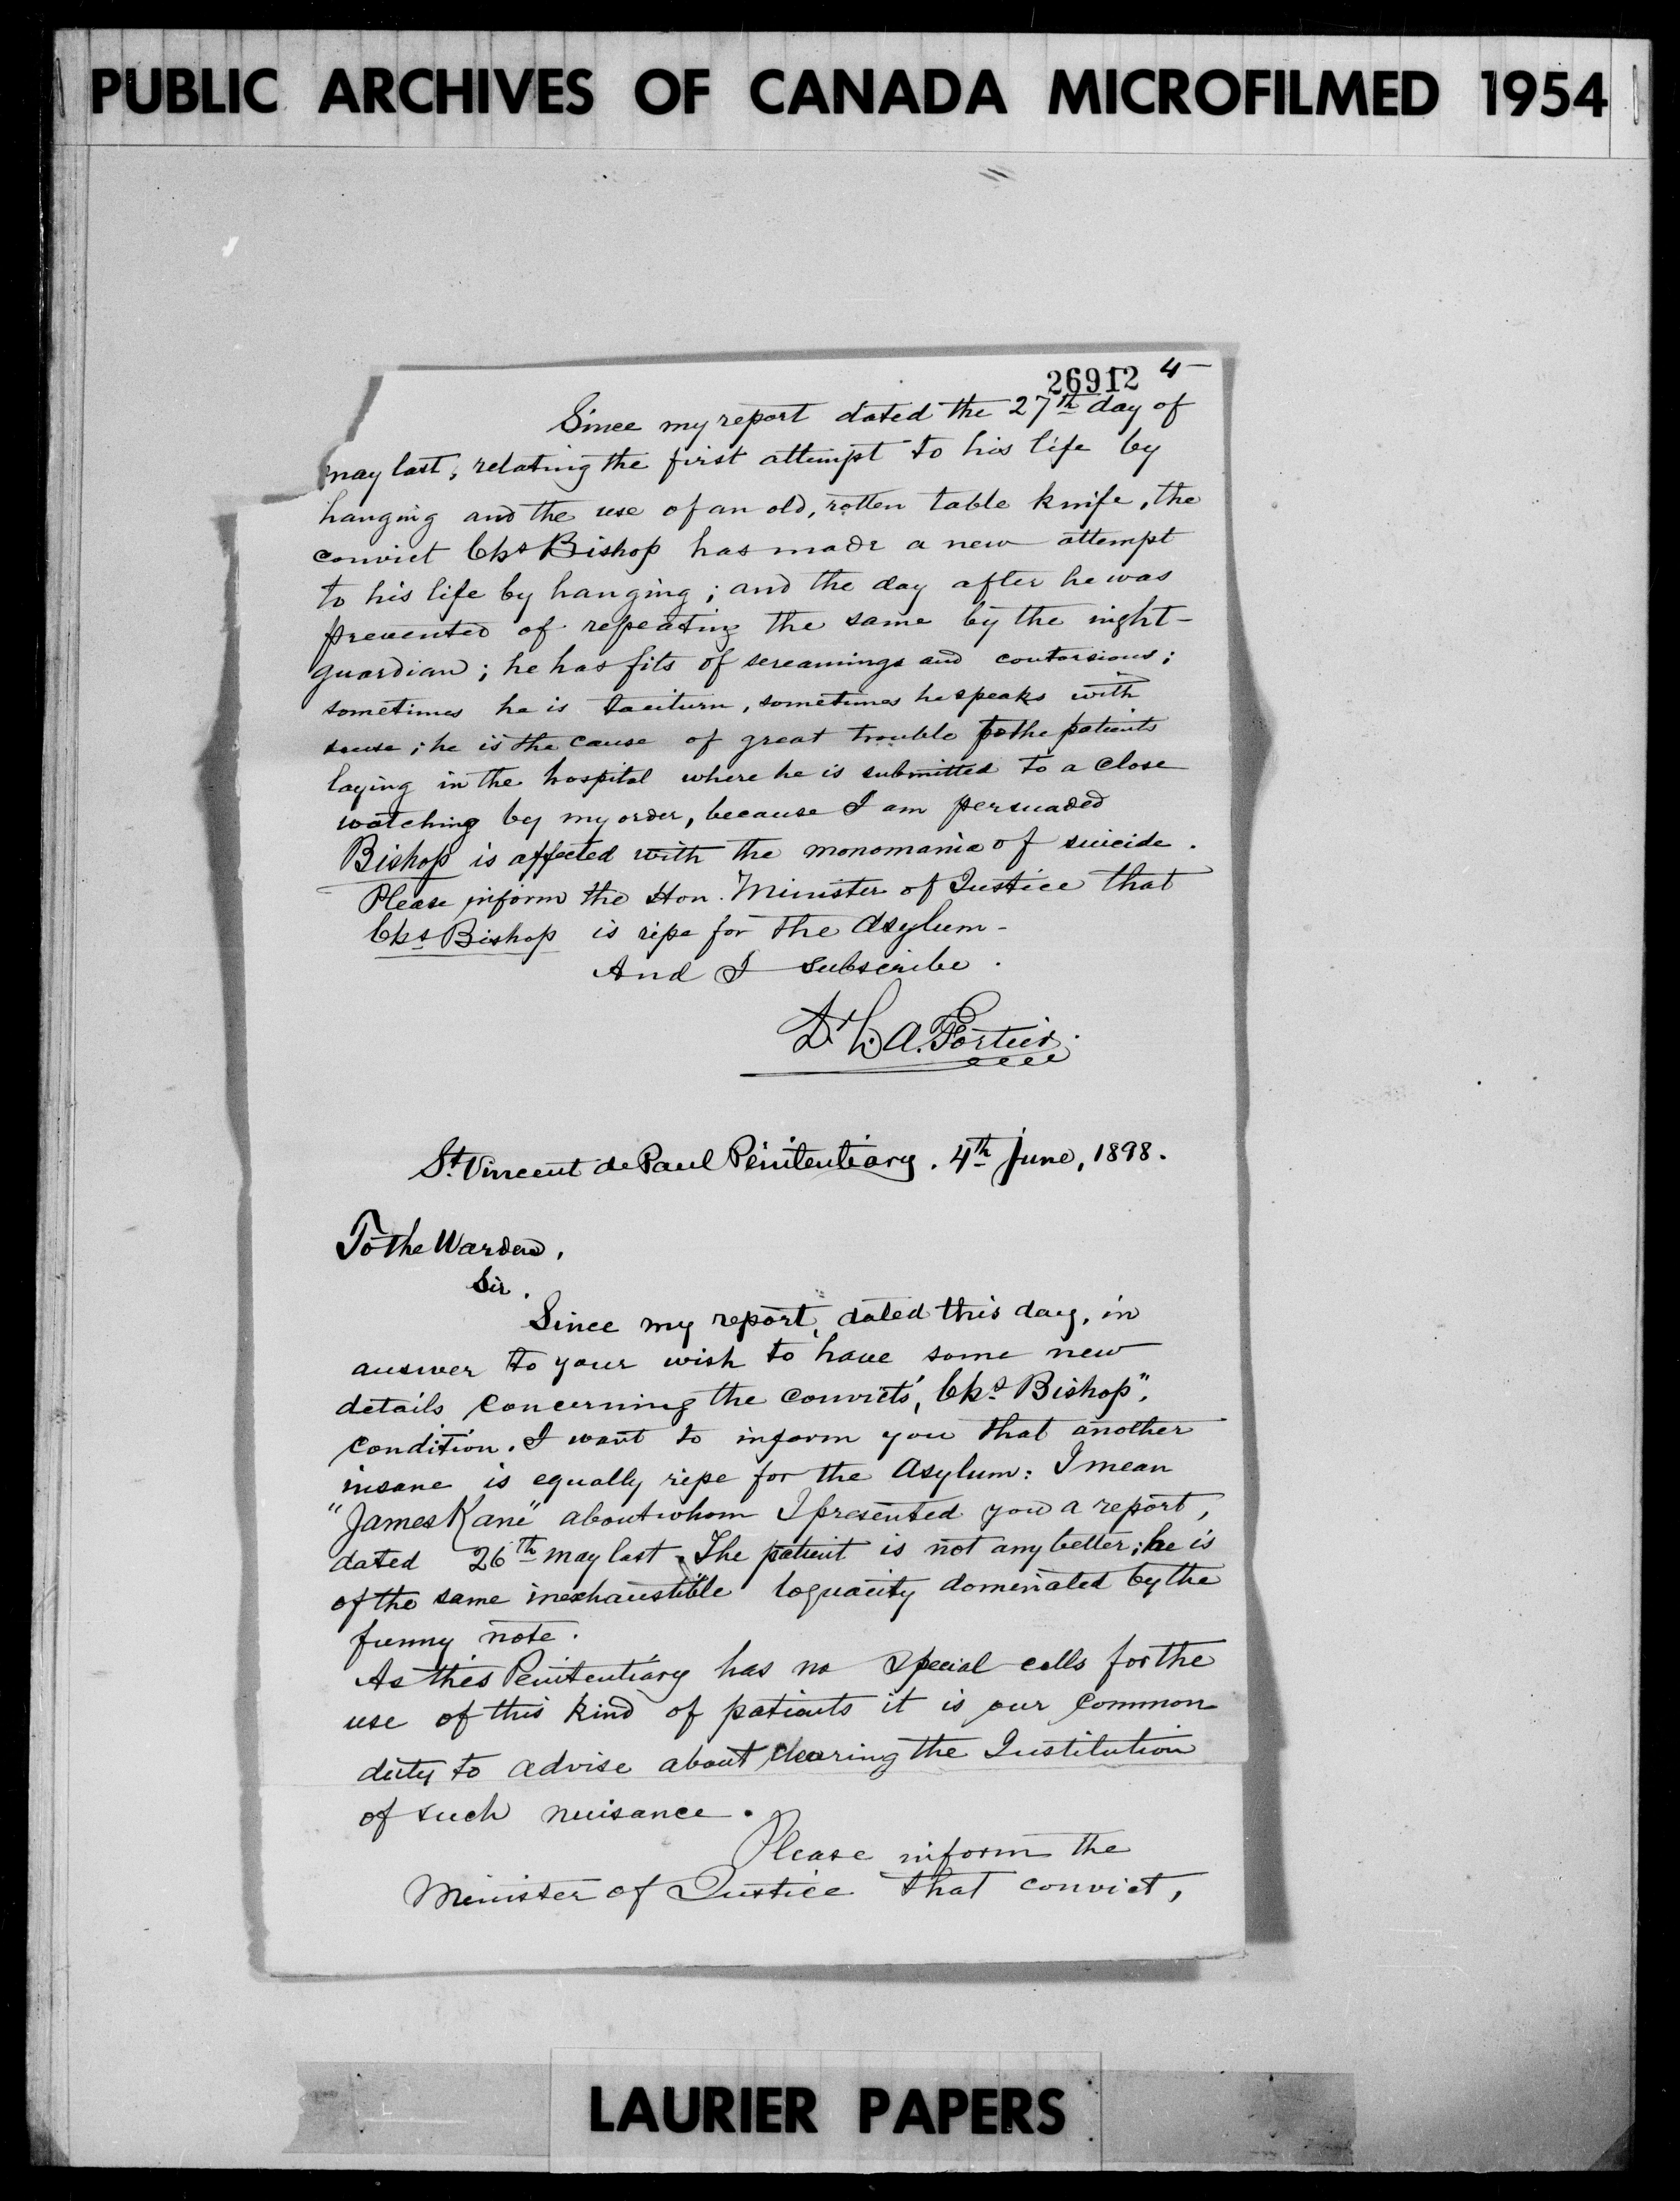 PUBLIC ARCHIVES OF CANADA MICROFILMED 1954
26912 4-
Since my report dated the 27th day of
may last, relating the first attempt to his life by
hanging and the use of an old, rotten table knife, the
convict Chs Bishop has made a new attempt
to his life by hanging; and the day after he was
prevented of repeating the same by the night-
guardian; he has fits of screamings and contorsions;
sometimes he is taciturn, sometimes he speaks with
sense; he is the cause of great trouble to the patients
laying in the hospital where he is submitted to a close
watching by my order, because I am persuaded
Bishop is affected with the monomania of suicide.
Please inform the Hon. Minister of Justice that
Chs Bishop is ripe for the Asylum-
And I subscribe.
Dr L. A. Fortier.
St. Vincent de Paul Penitentiary. 4th June, 1898.
To the Warden,
Sir.
Since my report, dated this day, in
answer to your wish to have some new
details concerning the convicts', Chs Bishop",
condition. I want to inform you that another
insane is equally ripe for the Asylum: I mean
"James Kane" about whom I presented you a report,
dated 26th may last. The patient is not any better; he is
of the same inexhaustible loquacity dominated by the
funny note.
As this Penitentiary has no special cells for the
use of this kind of patients it is our common
duty to advise about clearing the Institution
of such nuisance.
Please inform the
Minister of Justice that convict,
LAURIER PAPERS